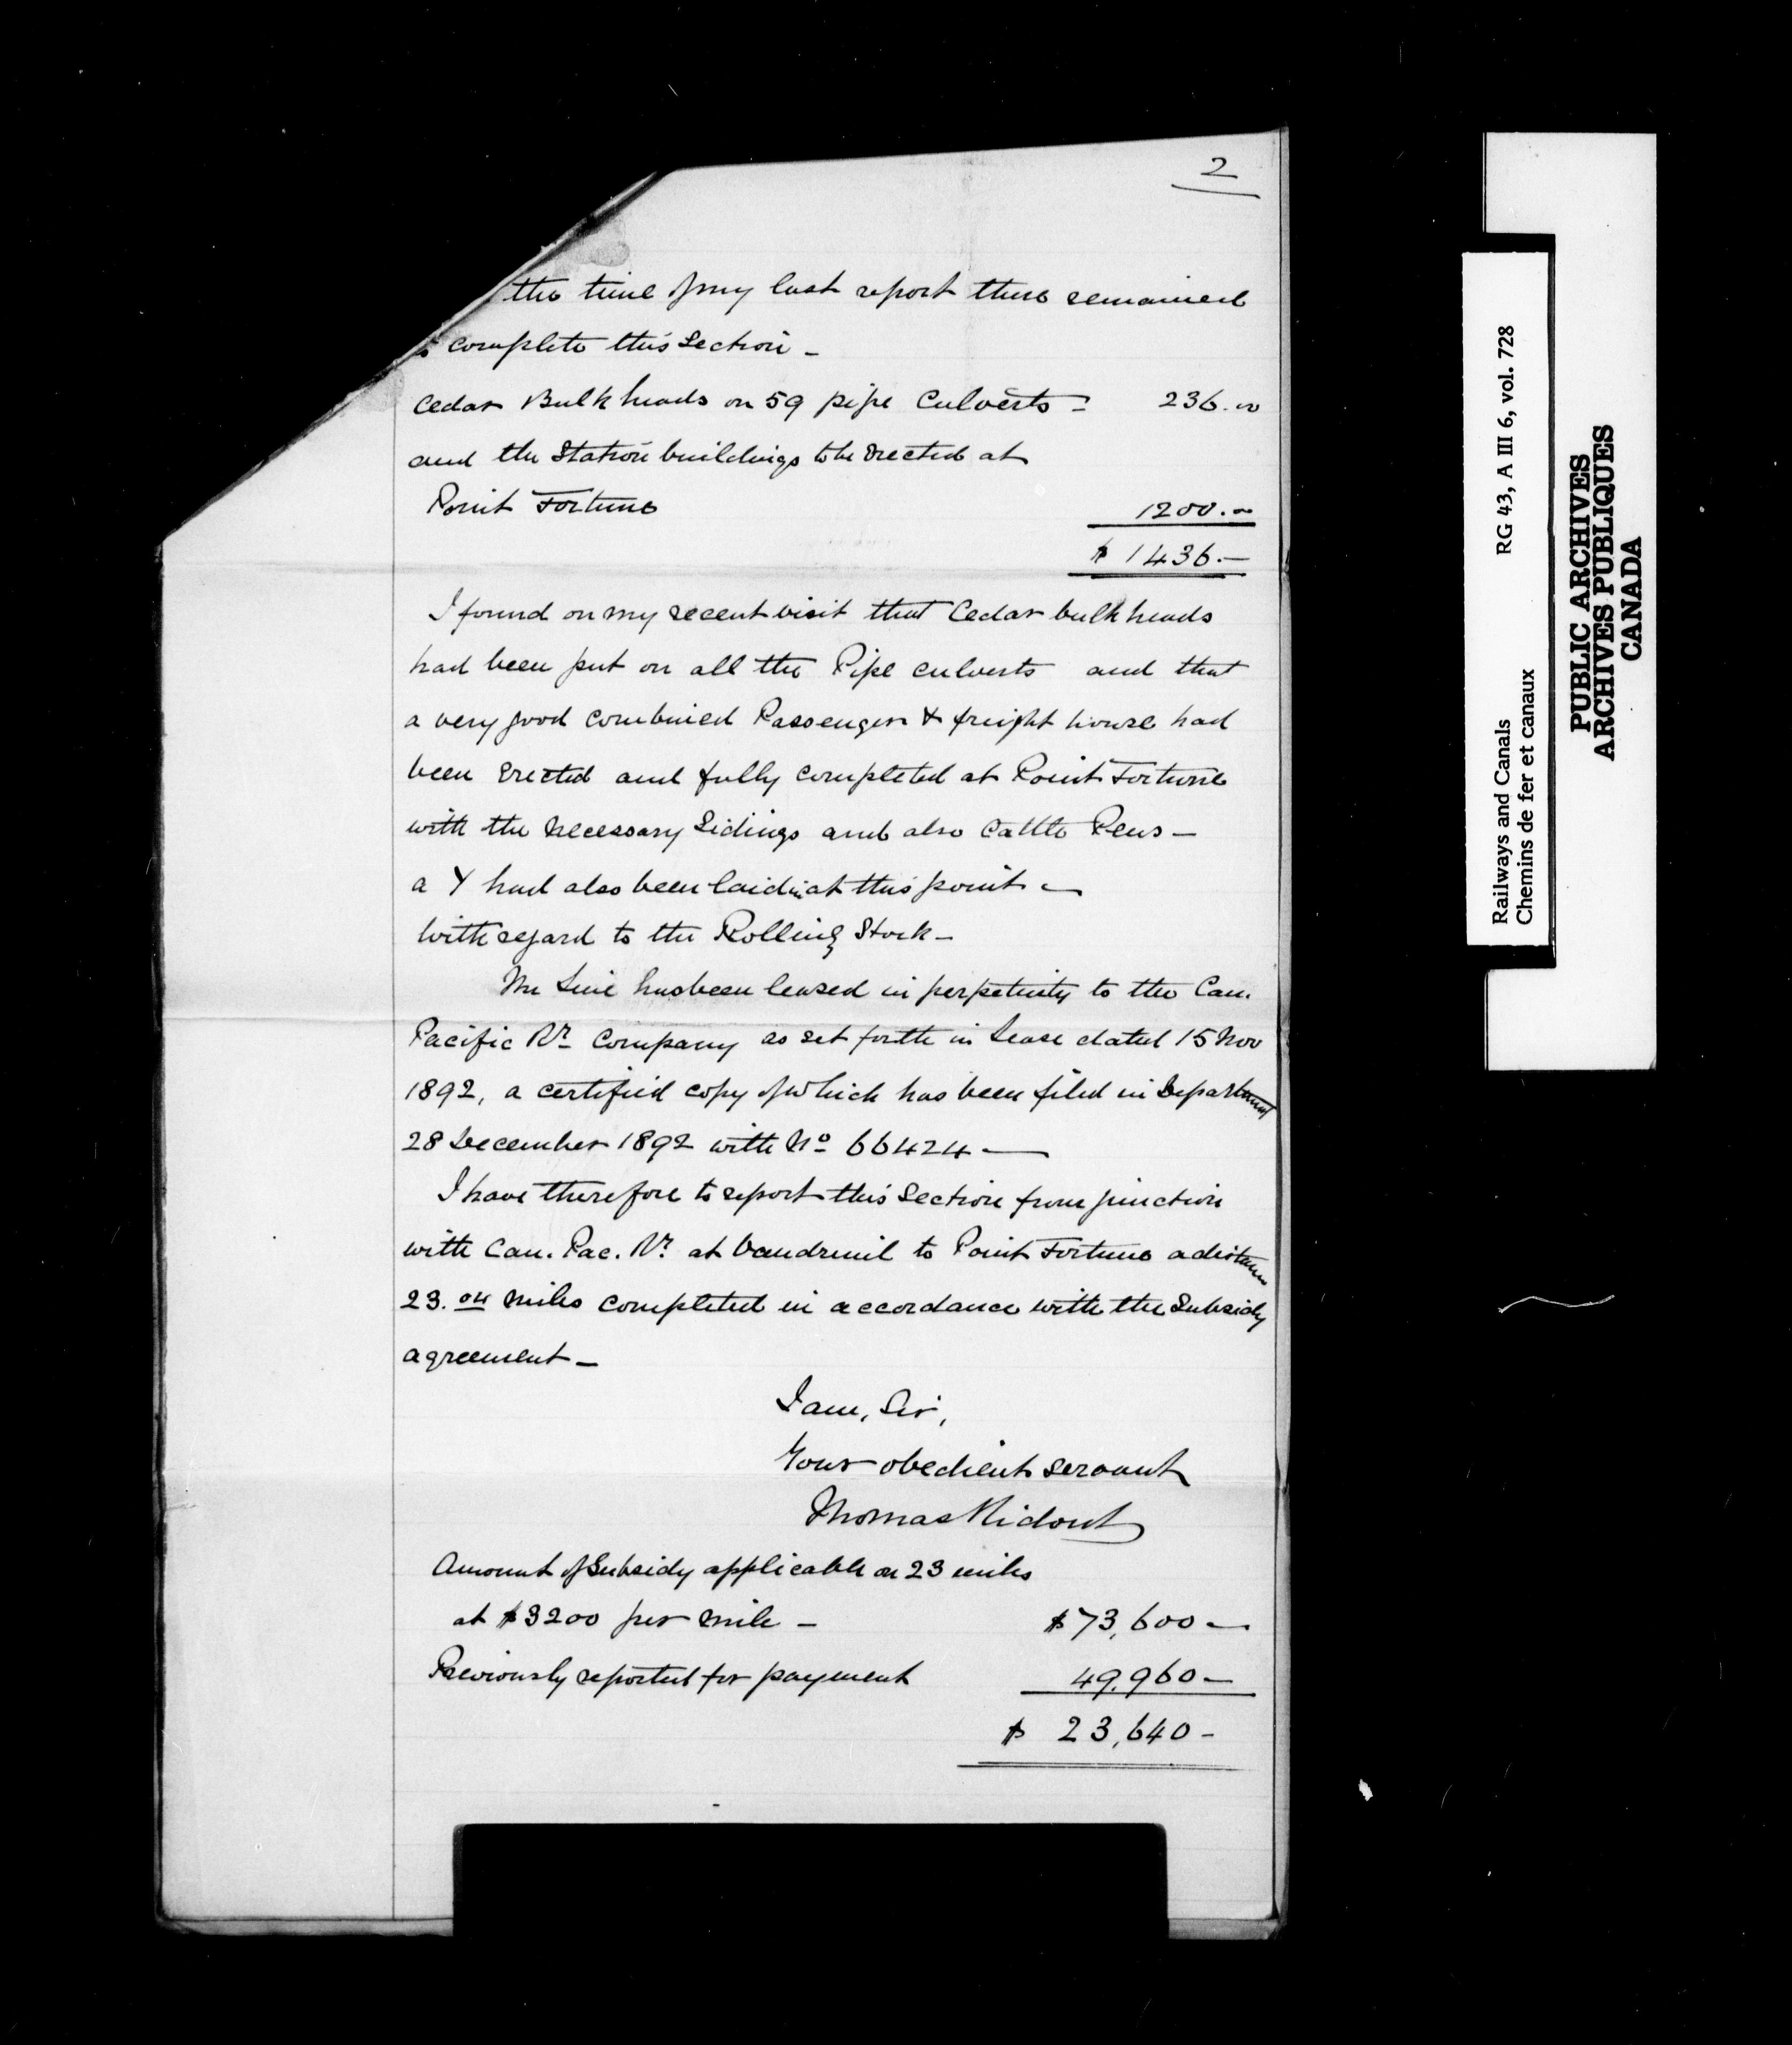 2
the time of my last report there remained
to complete this Section -
Cedar Bulkheads on 59 pipe Culverts = 236.00
and the Station buildings to be erected at
Point Fortune 1200.00
$ 1436.—
I found on my recent visit that Cedar bulkheads
had been put on all the Pipe culverts and that
a very good combined Passenger & freight house had
been erected and fully completed at Point Fortune
with the necessary Sidings and also Cattle Pens —
a Y had also been laid in at this point —
With regard to the Rolling Stock —
The Line has been leased in perpetuity to the Can.
Pacific Ry Company as set forth in Lease dated 15 Nov
1892, a certified copy of which has been filed in Department
28 December 1892 with No 66424 —
I have therefore to report this Section from junction
with Can. Pac. Ry at Vaudreuil to Point Fortune a distance
23.04 miles completed in accordance with the Subsidy
agreement —
I am, Sir,
Your obedient servant
Thomas Ridout
Amount of Subsidy applicable on 23 miles
at $3200 per mile — $73,600 —
Previously reported for payment 49,960 —
$ 23,640 -
Railways and Canals RG 43, A III 6, vol. 728
Chemins de fer et canaux
PUBLIC ARCHIVES
ARCHIVES PUBLIQUES
CANADA